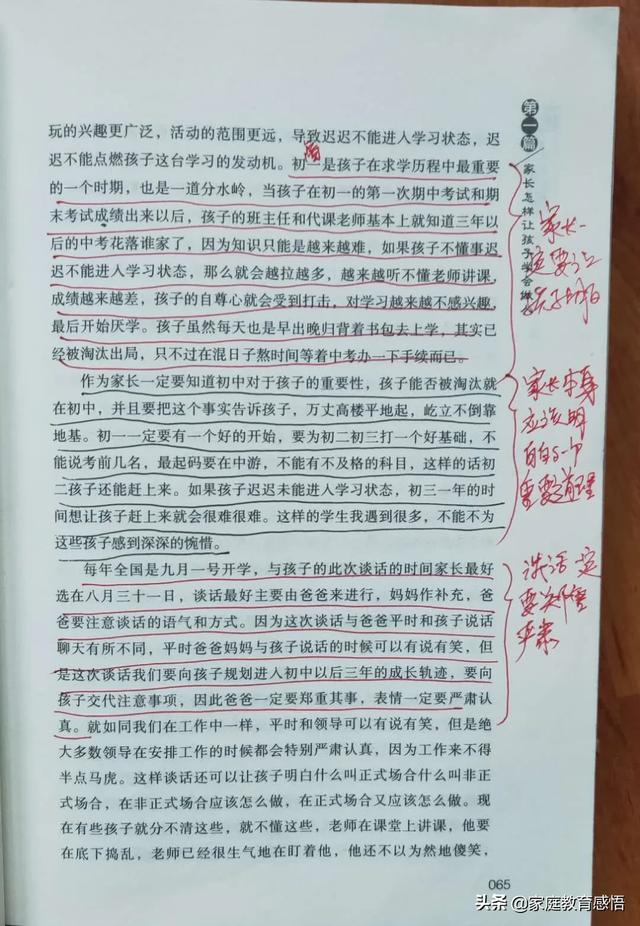 第一篇
家长怎样让孩子学会
玩的兴趣更广泛，活动的范围更远，导致迟迟不能进入学习状态，迟
迟不能点燃孩子这台学习的发动机。初一是孩子在求学历程中最重要
的一个时期，也是一道分水岭，当孩子在初一的第一次期中考试和期
末考试成绩出来以后，孩子的班主任和代课老师基本上就知道三年以
后的中考花落谁家了，因为知识只能是越来越难，如果孩子不懂事迟
迟不能进入学习状态，那么就会越拉越多，越来越听不懂老师讲课，
成绩越来越差，孩子的自尊心就会受到打击，对学习越来越不感兴趣，
最后开始厌学。孩子虽然每天也是早出晚归背着书包去上学，其实已
经被淘汰出局，只不过在混日子熬时间等着中考办一下手续而已。
作为家长一定要知道初中对于孩子的重要性，孩子能否被淘汰就
在初中，并且要把这个事实告诉孩子，万丈高楼平地起，屹立不倒靠
地基。初一一定要有一个好的开始，要为初二初三打一个好基础，不
能说考前几名，最起码要在中游，不能有不及格的科目，这样的话初
二孩子还能赶上来。如果孩子迟迟未能进入学习状态，初三一年的时
间想让孩子赶上来就会很难很难。这样的学生我遇到很多，不能不为
这些孩子感到深深的惋惜。
每年全国是九月一号开学，与孩子的此次谈话的时间家长最好
选在八月三十一日，谈话最好主要由爸爸来进行，妈妈作补充，爸
爸要注意谈话的语气和方式。因为这次谈话与爸爸平时和孩子说话
聊天有所不同，平时爸爸妈妈与孩子说话的时候可以有说有笑，但
是这次谈话我们要向孩子规划进入初中以后三年的成长轨迹，要向
孩子交代注意事项，因此爸爸一定要郑重其事，表情一定要严肃认
真。就如同我们在工作中一样，平时和领导可以有说有笑，但是绝
大多数领导在安排工作的时候都会特别严肃认真，因为工作来不得
半点马虎。这样谈话还可以让孩子明白什么叫正式场合什么叫非正
式场合，在非正式场合应该怎么做，在正式场合又应该怎么做。现
在有些孩子就分不清这些，就不懂这些，老师在课堂上讲课，他要
在底下捣乱，老师已经很生气地在盯着他，他还不以为然地傻笑，
家长一
定要让
孩子明白
家长本身
应该明
白这个
重要道理
谈话一定
要郑重
严肃
065
头条 @家庭教育感悟